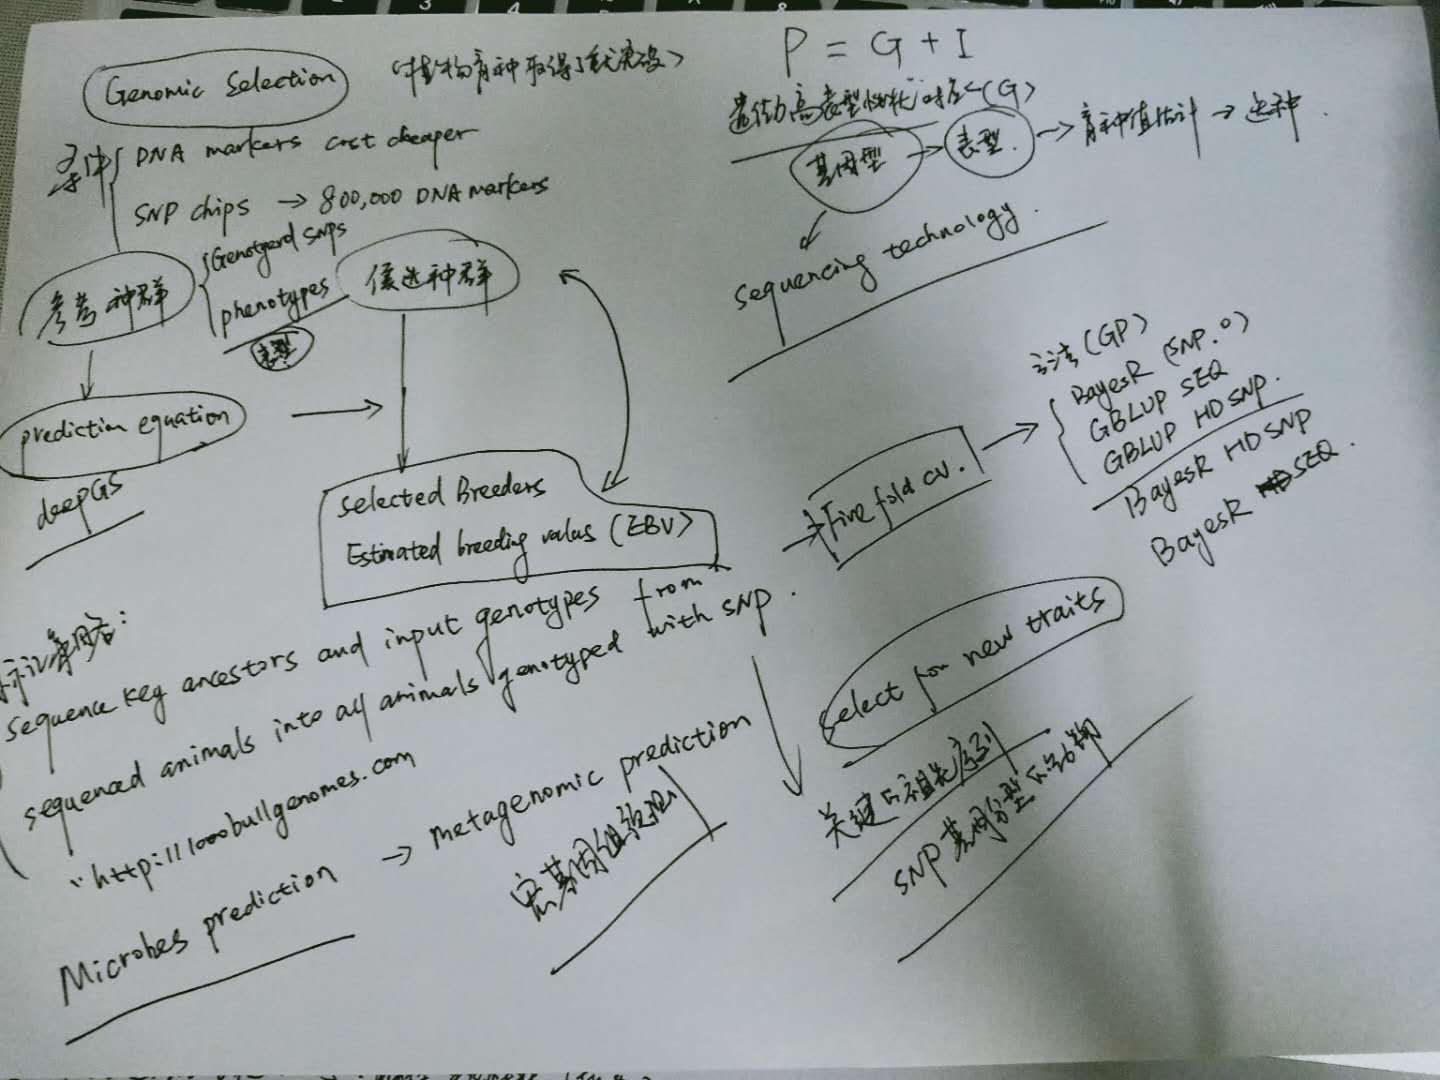 Genomic Selection
(植物育种取得了重大突破)
条件
DNA markers cost cheaper
SNP chips → 800,000 DNA markers
参考种群
Genotyerd SNPs
phenotypes
表型
候选种群
prediction equation
deepGS
Selected Breeders
Estimated breeding values (EBV)
P = G + I
遗传力高表型性状 (G)
基因型 → 表型 → 育种值估计 → 选种.
sequencing technology.
→ Five fold cv.
→ 方法 (GP)
BayesR (SNP. 0)
GBLUP SEQ
GBLUP HD SNP.
BayesR HD SNP
BayesR SEQ.
sequence key ancestors and input genotypes from
sequenced animals into all animals genotyped with SNP.
"http://1000bullgenomes.com
Microbes prediction → metagenomic prediction
宏基因组数据
select for new traits
关键的祖先序列
SNP基因分型的动物